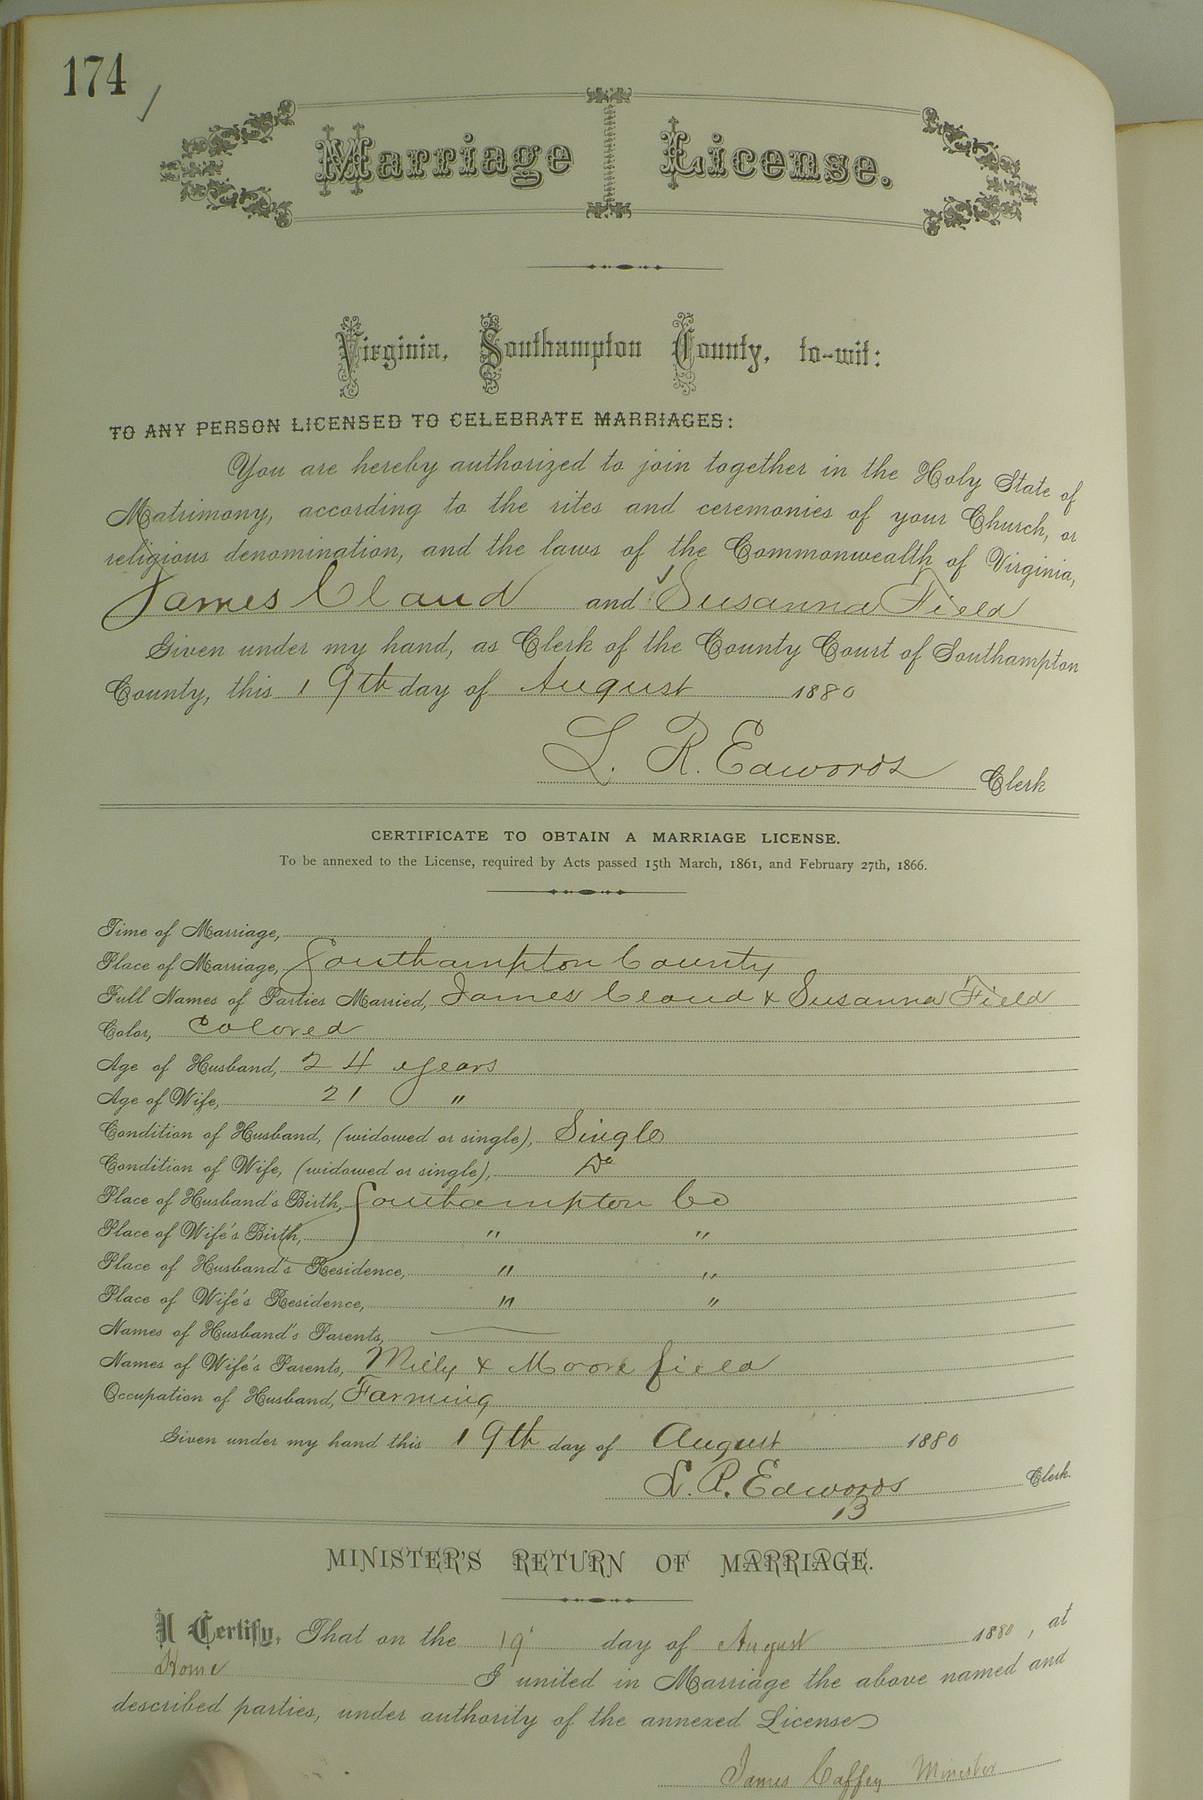 174
Marriage License.
Virginia, Southampton County, to-wit:
TO ANY PERSON LICENSED TO CELEBRATE MARRIAGES:
You are hereby authorized to join together in the Holy State of
Matrimony, according to the rites and ceremonies of your Church, or
religious denomination, and the laws of the Commonwealth of Virginia,
James Claud and Susanna Field
Given under my hand, as Clerk of the County Court of Southampton
County, this 19th day of August 1880
L. R. Edwards Clerk
CERTIFICATE TO OBTAIN A MARRIAGE LICENSE.
To be annexed to the License, required by Acts passed 15th March, 1861, and February 27th, 1866.
Time of Marriage,
Place of Marriage, Southampton County
Full Names of Parties Married, James Claud & Susanna Field
Color, Colored
Age of Husband, 24 years
Age of Wife, 21 "
Condition of Husband, (widowed or single), Single
Condition of Wife, (widowed or single), Do
Place of Husband's Birth, Southampton Co
Place of Wife's Birth, " "
Place of Husband's Residence, " "
Place of Wife's Residence, " "
Names of Husband's Parents,
Names of Wife's Parents, Milly & Moore field
Occupation of Husband, Farming
Given under my hand this 19th day of August 1880
L. R. Edwards Clerk.
MINISTER'S RETURN OF MARRIAGE.
I Certify, That on the 19 day of August 1880, at
Home I united in Marriage the above named and
described parties, under authority of the annexed License
James Caffey Minister